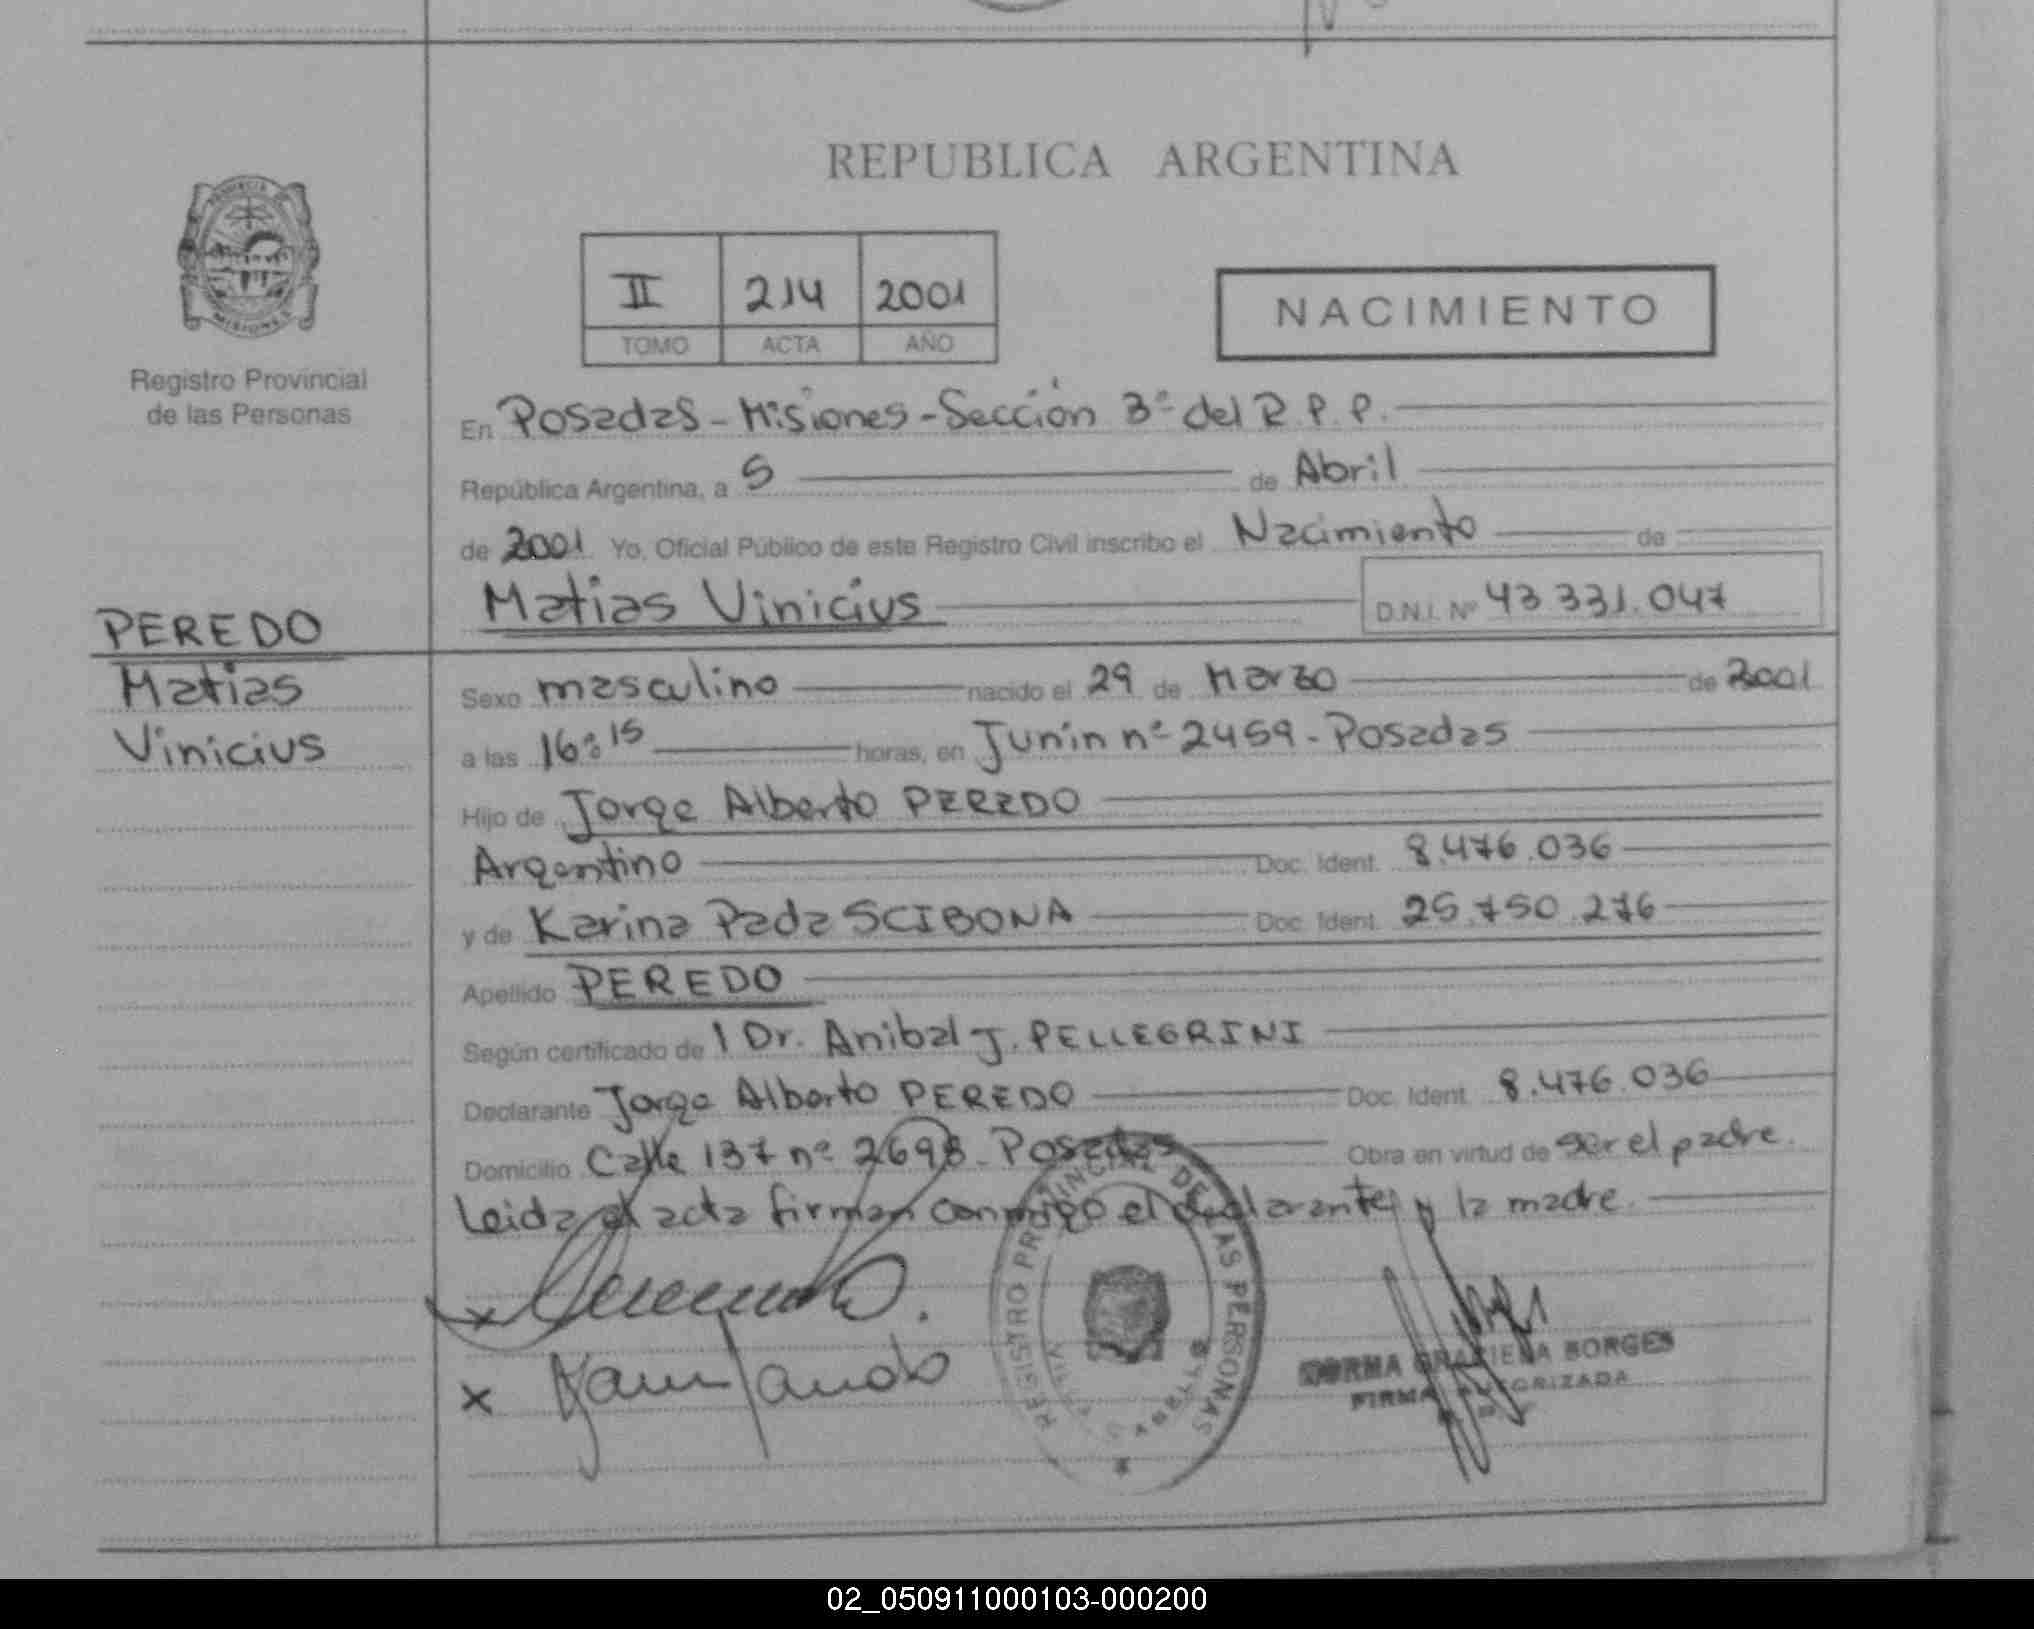 REPUBLICA ARGENTINA
PROVINCIA
MISIONES
Registro Provincial
de las Personas
II 214 2001
TOMO ACTA AÑO
NACIMIENTO
En Posadas - Misiones - Sección 3ª del R.P.P.
República Argentina, a 5 de Abril
de 2001 Yo, Oficial Público de este Registro Civil inscribo el Nacimiento de
Matias Vinicius D.N.I. Nº 43 331.047
PEREDO
Matias
Vinicius
Sexo masculino nacido el 29 de Marzo de 2001
a las 16:15 horas, en Junín nº 2459 - Posadas
Hijo de Jorge Alberto PEREDO
Argentino Doc. Ident. 8.476.036
y de Karina Pada SCIBONA Doc. Ident. 25.750.276
Apellido PEREDO
Según certificado de l Dr. Anibal J. PELLEGRINI
Declarante Jorge Alberto PEREDO Doc. Ident. 8.476.036
Domicilio Calle 137 nº 2698 - Posadas Obra en virtud de ser el padre.
Leida el acta firman conmigo el declarante y la madre.
REGISTRO PROVINCIAL DE LAS PERSONAS
x
x
NORMA GRACIELA BORGES
FIRMA AUTORIZADA
02_050911000103-000200